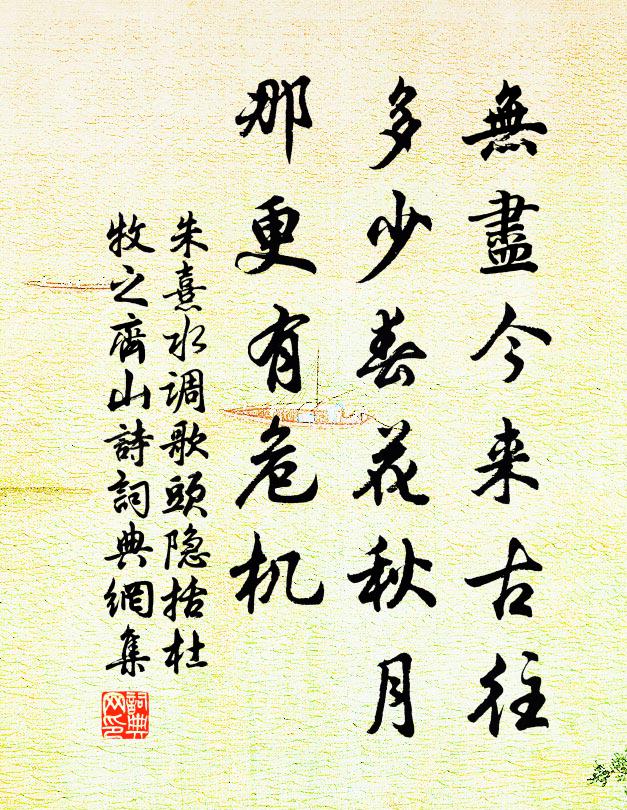 無盡今来古往
多少春花秋月
那更有危机
朱熹水调歌頭隐括杜
牧之齊山詩詞典網集
詞典网印